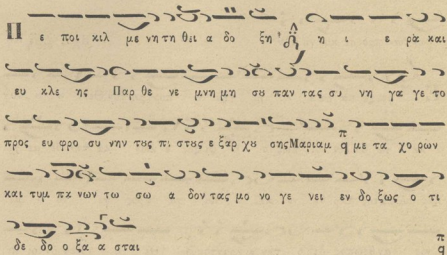 Π ε ποι κιλ με νη τη θει α δο ξη η ι ε ρα και
ευ κλε ης Παρ θε νε μνη μη σου παν τας συ νη γα γε το
προς ευ φρο συ νην τους πι στους ε ξαρ χου σης Μαριαμ με τα χο ρων
και τυμ πα νων τω σω α δον τας μο νο γε νει εν δο ξως ο τι
δε δο ο ξα α σται